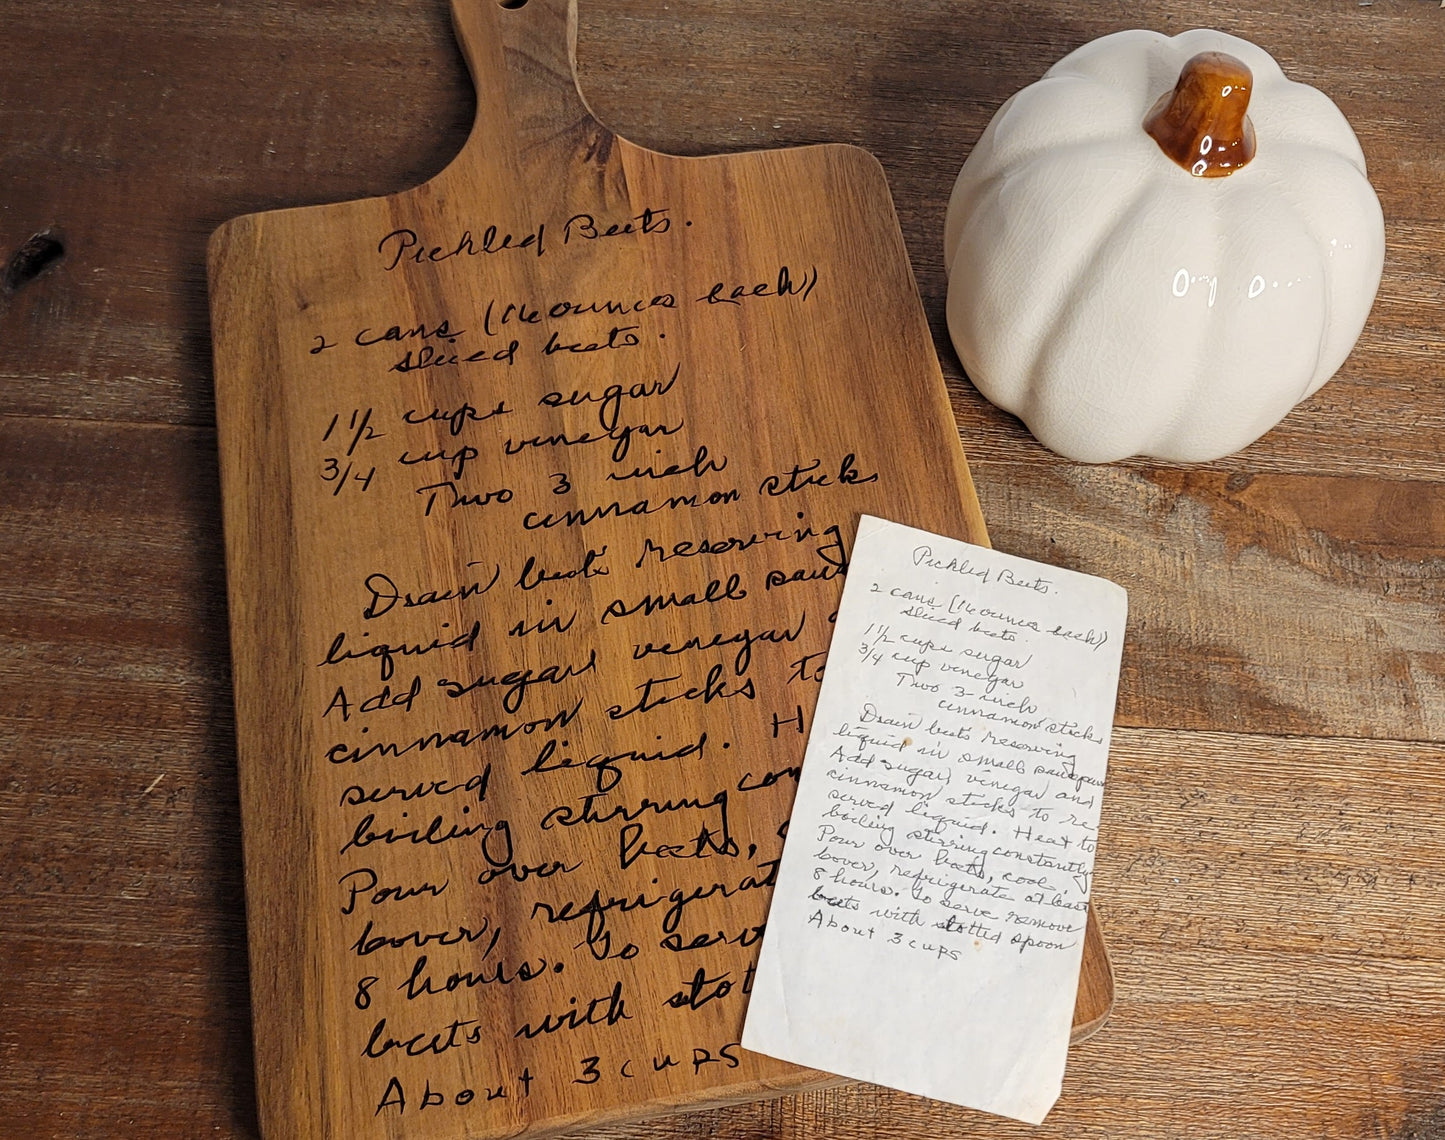 Pickled Beets.
2 cans (16 ounces each)
sliced beets.
1 1/2 cups sugar
3/4 cup vinegar
Two 3 inch
cinnamon sticks
Drain beets reserving
liquid in small sauc
Add sugar vinegar a
cinnamon sticks to
served liquid. H
boiling stirring con
Pour over beets,
cover, refrigerat
8 hours. To serv
beets with slot
About 3 cups
Pickled Beets.
2 cans (16 ounces each)
sliced beets.
1 1/2 cups sugar
3/4 cup vinegar
Two 3-inch
cinnamon sticks
Drain beets reserving
liquid in small saucepan
Add sugar, vinegar and
cinnamon sticks to re-
served liquid. Heat to
boiling stirring constantly
Pour over beets, cool,
cover, refrigerate at least
8 hours. To serve remove
beets with slotted spoon
About 3 cups